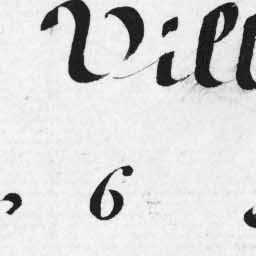 Vill
6